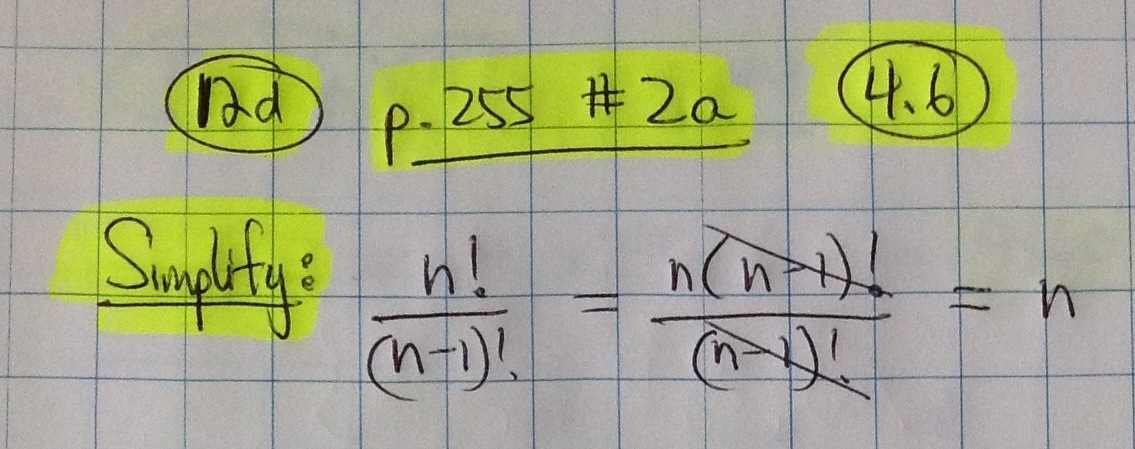 12d p. 255 # 2a 4.6
Simplify: n!/(n-1)! = n(n-1)!/(n-1)! = n